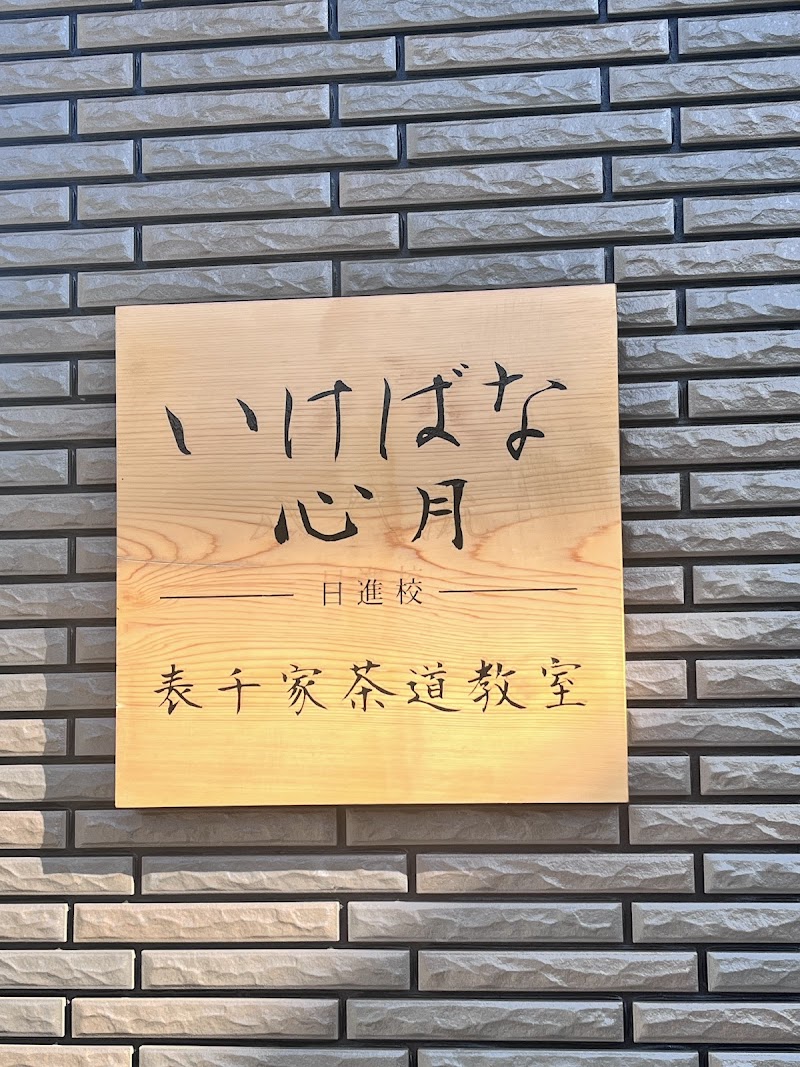 いけばな
心月
日進校
表千家茶道教室